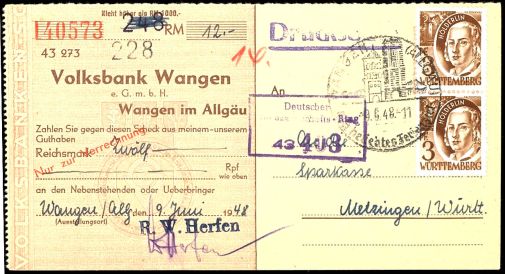 Nicht höher als RM 1000.-
140573
248 RM
12.-
Drucks
43 273
228
14.
Volksbank Wangen
e. G. m. b. H.
Wangen im Allgäu
An
Zahlen Sie gegen diesen Scheck aus meinem-unserem
Guthaben
Reichsmark zwölf
Rpf
wie oben
Nur zur Verrechnung
an den Nebenstehenden oder Ueberbringer
Wangen/Allg den 9. Juni 1948
(Ausstellungsort)
R. W. Herfen
Herfen
Deutscher
Ring
43 403
9.6.48.-11
Sparkasse
Metzingen / Württ.
HÖLDERLIN
WÜRTTEMBERG
HÖLDERLIN
3
WÜRTTEMBERG
VOLKSBANKEN